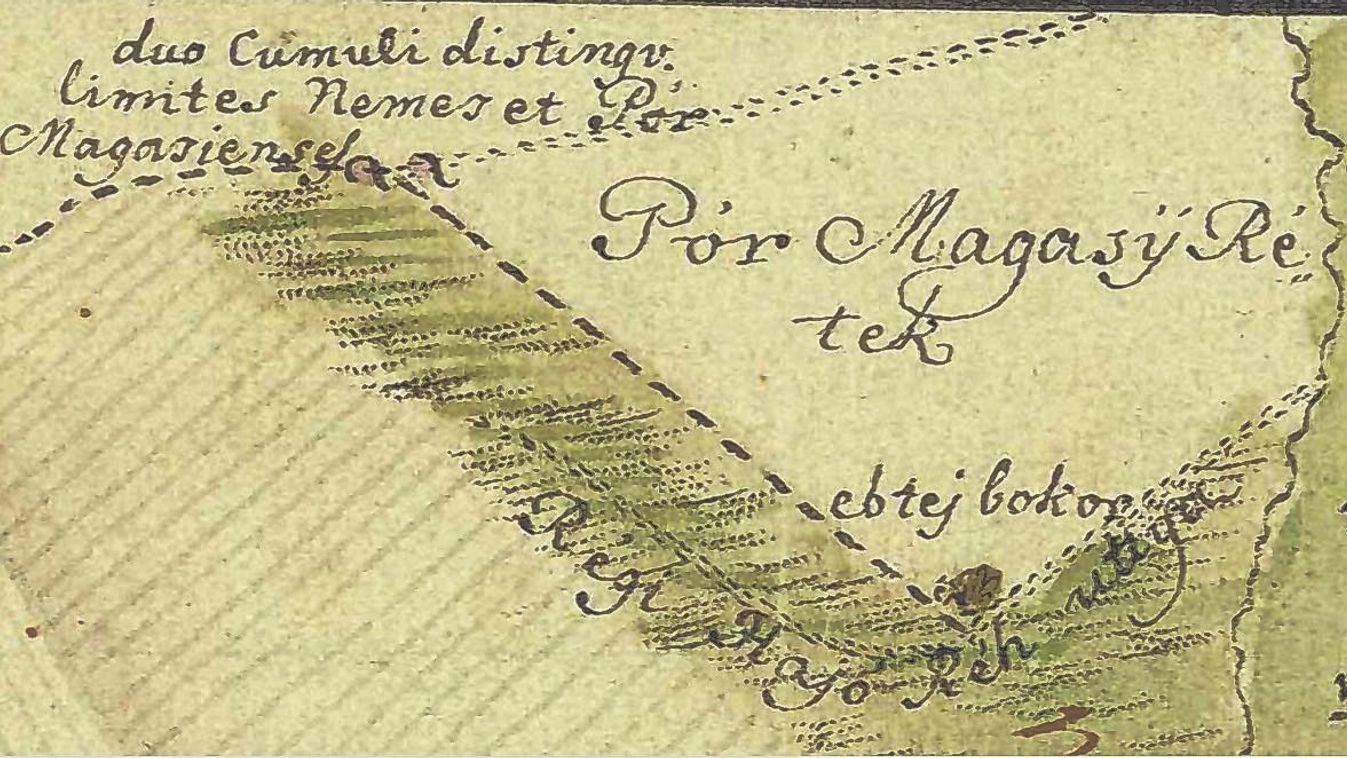 duo Cumuli distingv.
limites Nemes et Pór
Magasienses
Pór Magasÿ Ré„
tek
ebtej bokor
Régi
Hajó Réh
uttya